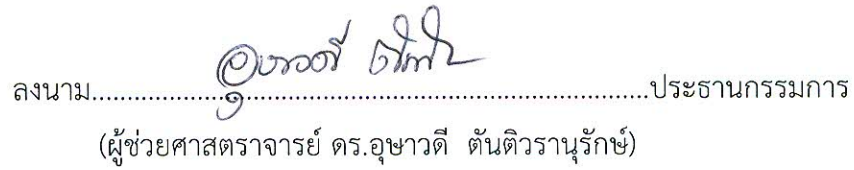 ลงนาม................................................................................ประธานกรรมการ
(ผู้ช่วยศาสตราจารย์ ดร.อุษาวดี ตันติวรานุรักษ์)